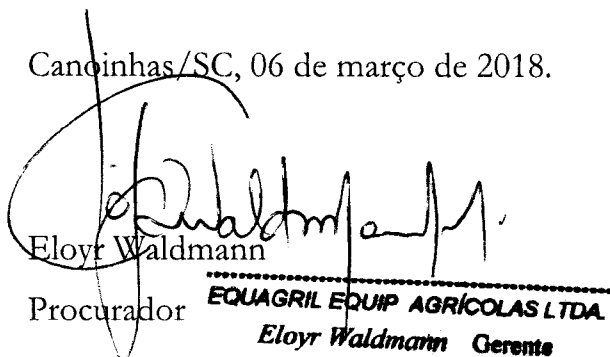 Canoinhas/SC, 06 de março de 2018.
Eloyr Waldmann
Procurador
EQUAGRIL EQUIP AGRÍCOLAS LTDA.
Eloyr Waldmann Gerente